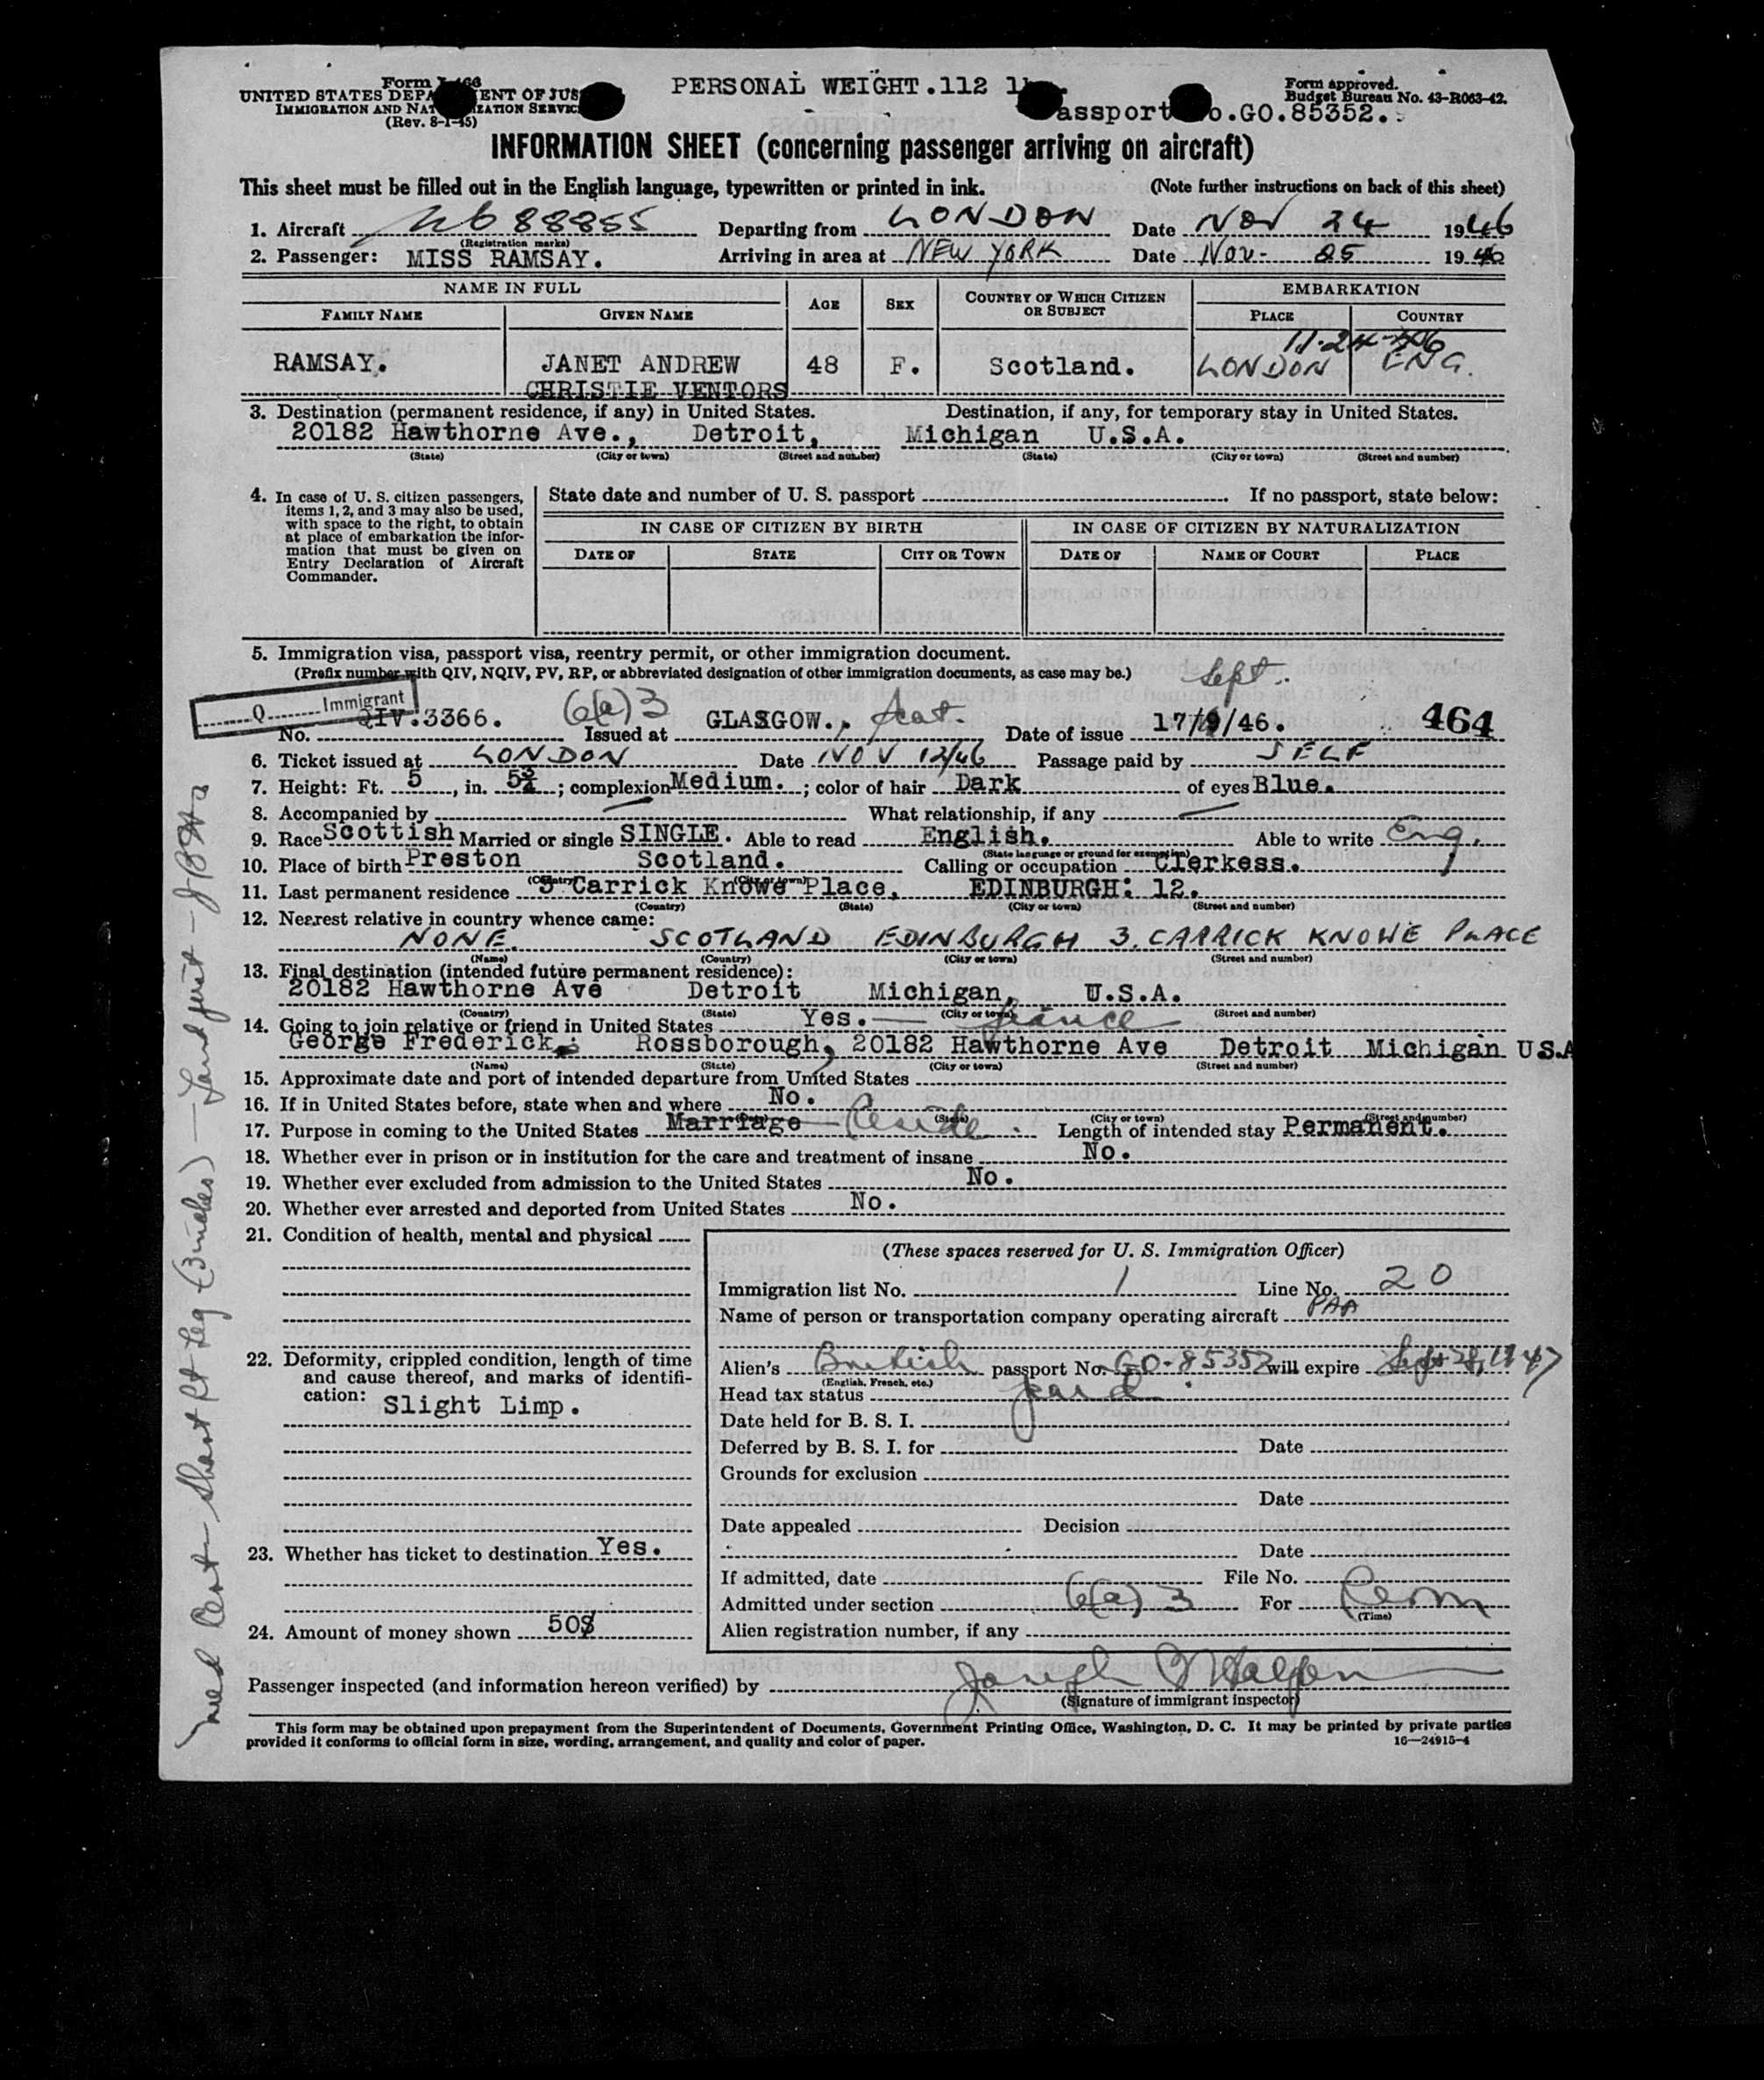 Form I-466
UNITED STATES DEPA ENT OF JUS
IMMIGRATION AND NAT IZATION SERVIC
(Rev. 8-1-45)
PERSONAL WEIGHT.112 l
Form approved.
Budget Bureau No. 43-R063-42.
assport o.GO.85352.
INFORMATION SHEET (concerning passenger arriving on aircraft)
This sheet must be filled out in the English language, typewritten or printed in ink. (Note further instructions on back of this sheet)
1. Aircraft 88855 Departing from LONDON Date NOV 24 1946
(Registration marks)
2. Passenger: MISS RAMSAY. Arriving in area at NEW YORK Date Nov- 25 1946
NAME IN FULL AGE SEX COUNTRY OF WHICH CITIZEN OR SUBJECT EMBARKATION
FAMILY NAME GIVEN NAME PLACE COUNTRY
11-24-46
RAMSAY. JANET ANDREW 48 F. Scotland. LONDON ENG.
CHRISTIE VENTORS
3. Destination (permanent residence, if any) in United States. Destination, if any, for temporary stay in United States.
20182 Hawthorne Ave., Detroit, Michigan U.S.A.
(State) (City or town) (Street and number) (State) (City or town) (Street and number)
4. In case of U. S. citizen passengers, items 1, 2, and 3 may also be used, with space to the right, to obtain at place of embarkation the information that must be given on Entry Declaration of Aircraft Commander.
State date and number of U. S. passport If no passport, state below:
IN CASE OF CITIZEN BY BIRTH IN CASE OF CITIZEN BY NATURALIZATION
DATE OF STATE CITY OR TOWN DATE OF NAME OF COURT PLACE
5. Immigration visa, passport visa, reentry permit, or other immigration document.
(Prefix number with QIV, NQIV, PV, RP, or abbreviated designation of other immigration documents, as case may be.) Sept.
Q Immigrant
No. QIV.3366. 6(a)3 Issued at GLASGOW. Scot. Date of issue 17/9/46. 464
6. Ticket issued at LONDON Date NOV 12/46 Passage paid by SELF
7. Height: Ft. 5, in. 5¾; complexion Medium.; color of hair Dark of eyes Blue.
8. Accompanied by What relationship, if any
9. Race Scottish Married or single SINGLE. Able to read English. Able to write Eng.
(State language or ground for exemption)
10. Place of birth Preston Scotland. Calling or occupation Clerkess.
(Country) (City or town)
11. Last permanent residence 3 Carrick Knowe Place, EDINBURGH: 12.
(Country) (State) (City or town) (Street and number)
12. Nearest relative in country whence came:
NONE. SCOTLAND EDINBURGH 3. CARRICK KNOWE PLACE
(Name) (Country) (City or town) (Street and number)
13. Final destination (intended future permanent residence):
20182 Hawthorne Ave Detroit Michigan, U.S.A.
(Country) (State) (City or town) (Street and number)
14. Going to join relative or friend in United States Yes. — fiance
George Frederick, Rossborough, 20182 Hawthorne Ave Detroit Michigan U.S.A
(Name) (State) (City or town) (Street and number)
15. Approximate date and port of intended departure from United States
16. If in United States before, state when and where No.
(State) (City or town) (Street and number)
17. Purpose in coming to the United States Marriage Reside. Length of intended stay Permanent.
18. Whether ever in prison or in institution for the care and treatment of insane No.
19. Whether ever excluded from admission to the United States No.
20. Whether ever arrested and deported from United States No.
21. Condition of health, mental and physical
22. Deformity, crippled condition, length of time and cause thereof, and marks of identification: Slight Limp.
23. Whether has ticket to destination Yes.
24. Amount of money shown 50$
(These spaces reserved for U. S. Immigration Officer)
Immigration list No. 1 Line No. 20
Name of person or transportation company operating aircraft PAA
Alien's British passport No. GO-85352 will expire Sept 28, 1947
(English, French, etc.)
Head tax status paid
Date held for B. S. I.
Deferred by B. S. I. for Date
Grounds for exclusion
Date
Date appealed Decision
Date
If admitted, date File No.
Admitted under section 6(a)3 For Perm
(Time)
Alien registration number, if any
Passenger inspected (and information hereon verified) by Joseph
(Signature of immigrant inspector)
This form may be obtained upon prepayment from the Superintendent of Documents, Government Printing Office, Washington, D. C. It may be printed by private parties
provided it conforms to official form in size, wording, arrangement, and quality and color of paper. 16—24915-4
Med Cert - Short Rt Leg (3 inches)